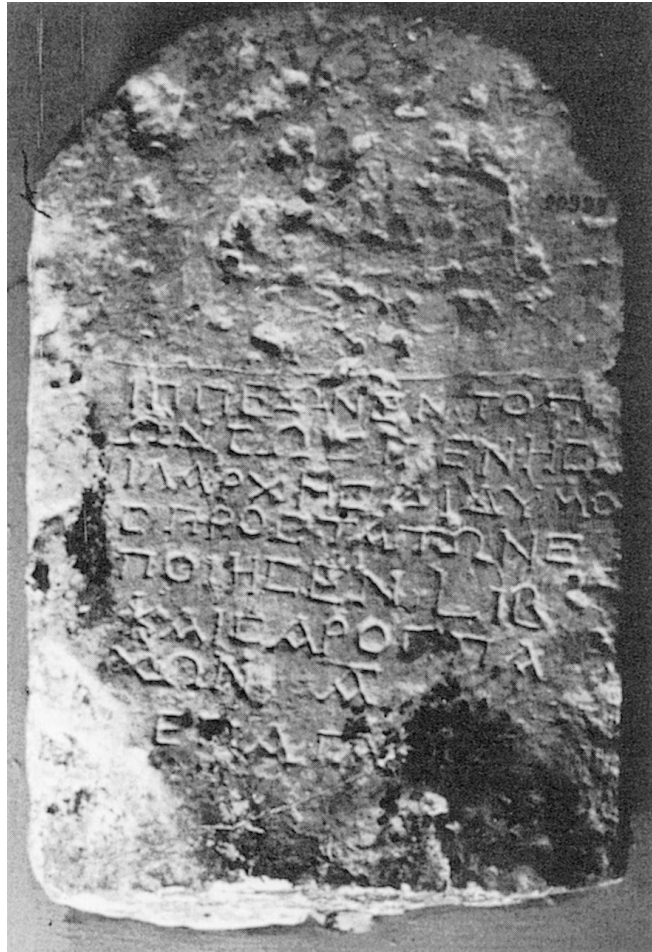 ΙΠΠΕΩΝ ΕΝ ΤΟΠ
ΩΝ
ΙΛΑΡΧΗΣ ΔΙΔΥΜΟ
Σ ΠΡΟΣΤΑΤΩΝ Ε
ΠΟΙΗΣΕΝ L ΙΒ
ΚΑΙΣΑΡΟΣ ΠΑ
ΧΩΝ Α̅
ΕΠ